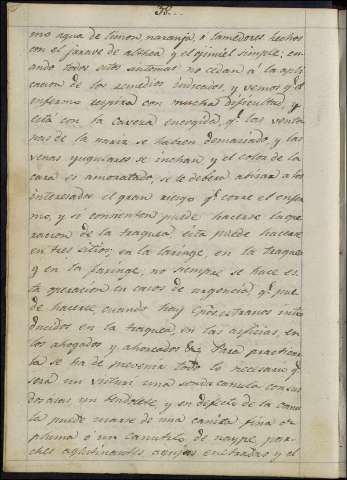 38...
mo agua de limon, naranja, o lamedores hechos
con el jarave de althea y el ojimiel simple; cu-
ando todos estos sintomas no cedan á la apli
cacion de los remedios indicados y vemos q.e el
enfermo respira con mucha dificultad, y
està con la caveza encogida, q.e las venta
nas de la nariz se habren demaciado, y las
venas yugulares se inchan y el color de la
cara es amoratado; se le deberà abisar a los
interesados el gran riesgo q.e corre el enfer
mo, y si consienten puede hacerse la ope
racion de la traquea: esta puede hacerse
en tres sitios; en la laringe, en la traquea
y en la faringe, no siempre se hace es
ta operacion en casos de urgencia q.e pue
de hacerse, cuando hay cpos. estraños intro
ducidos en la traquea, en las asficias, en
los ahogados y ahorcados. Para practicar
la se ha de prevenir todo lo necesario q.e
serà un visturi una sonda canula con sus
dos asas, un fiadorete, y en defecto de la canu
la puede usarse de una cañita fina ò
pluma ò un canutito de naype, par-
ches aglutinantes, agujas enebradas y el